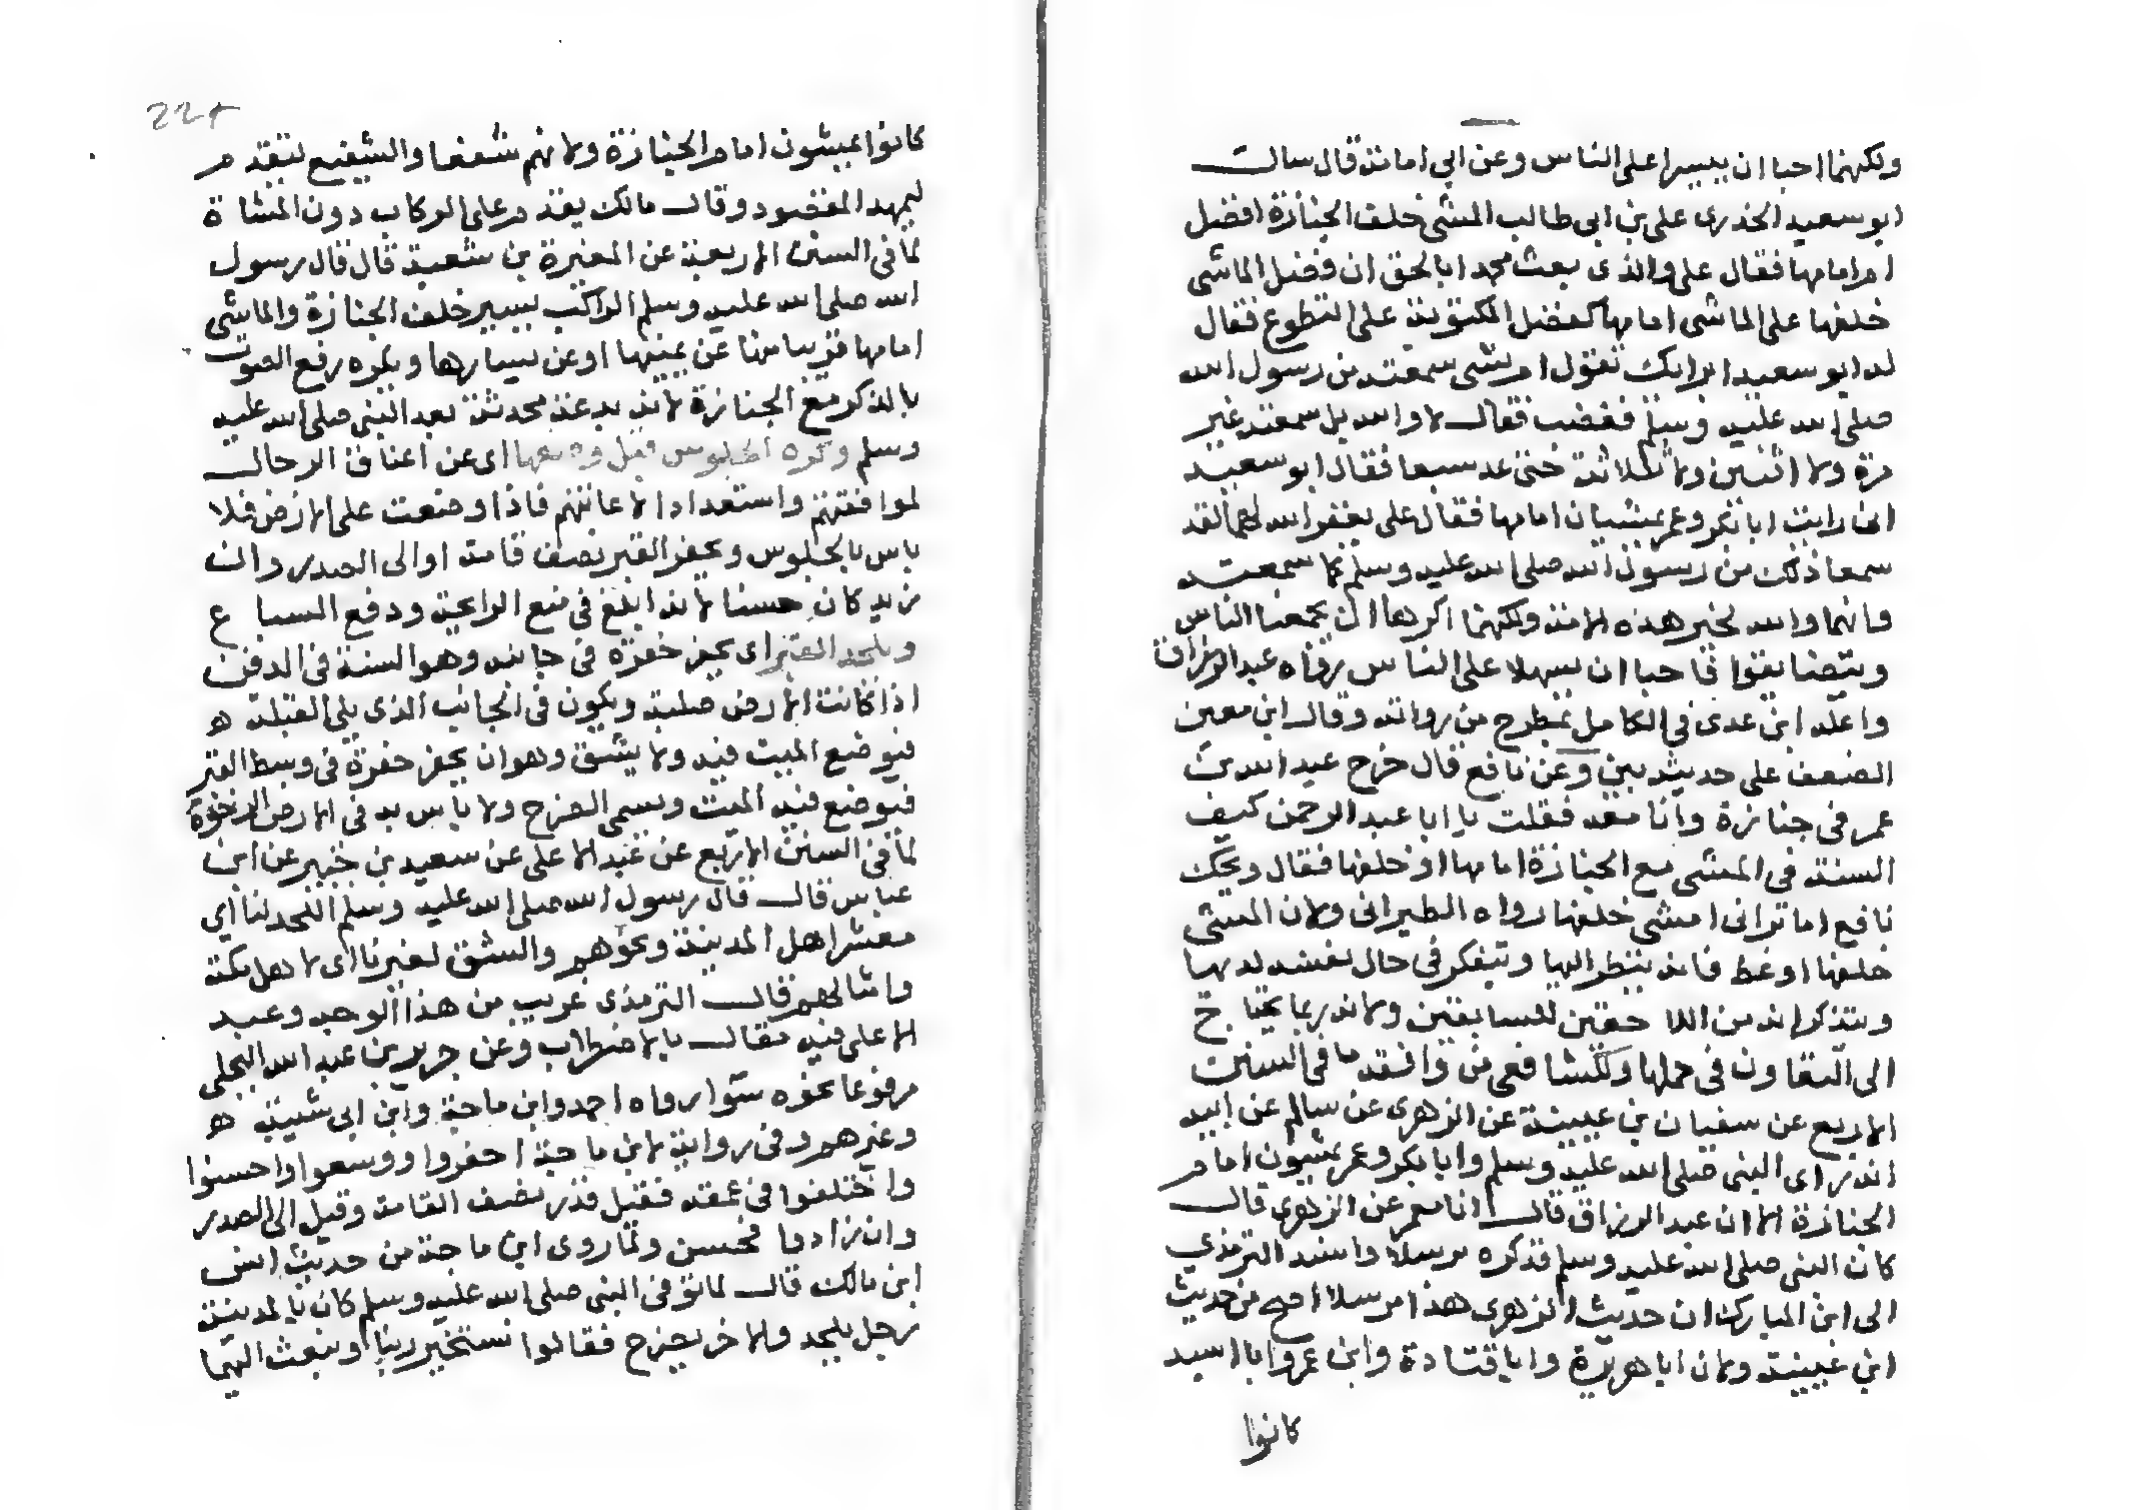 ولكنهما احبا ان ييسرا على الناس وعن ابي امامة قال سالت
ابو سعيد الخدرى على بن ابى طالب المشى خلف الجنازة افضل
ام امامها فقال على والذى بعث محمدا بالحق ان فضل الماشى
خلفها على الماشى امامها كفضل المكتوبة على التطوع فقال
له ابو سعيد ابرايك تقول ام بشى سمعته من رسول الله
صلى الله عليه وسلم فغضب فقال لا والله بل سمعته غير
مرة ولا اثنين ولا ثلاثة حتى عد سبعا فقال ابو سعيد
انى رايت ابا بكر وعمر يمشيان امامها فقال على يغفر الله لهما لقد
سمعا ذلك من رسول الله صلى الله عليه وسلم كما سمعته
وانهما والله لخير هذه الامة ولكنهما اكرها ان يجمعا الناس
ويتضايقوا فاحبا ان يسهلا على الناس رواه عبد الرزاق
واعله ابن عدى في الكامل بمطرح من رواته وقال ابن معين
الضعف على حديثه بين وعن نافع قال خرج عبد الله بن
عمر فى جنازة وانا معه فقلت يا ابا عبد الرحمن كيف
السنة في المشى مع الجنازة امامها او خلفها فقال ويحك
نافع اما ترانى امشى خلفها رواه الطبرانى ولان المشى
خلفها اوعظ فانه ينظر اليها ويتفكر في حال نفسه لديها
ويتذكر انه من اللا حقين للسابقين ولانه ربما يحتا ج
الى التعاون فى حملها وللشافعي من والتقدم ما فى السنن
الاربع عن سفيان بن عيينة عن الزهرى عن سالم عن ابيه
انه راى النبى صلى الله عليه وسلم وابا بكر وعمر يمشون امام
الجنازة الا ان عبد الرزاق قال انا معمر عن الزهرى قال
كان النبى صلى الله عليه وسلم فذكره مرسلا واسند الترمذي
الى ابن المبارك ان حديث الزهرى هذا مرسلا اصح من حديث
ابن عيينة ولان ابا هريرة وابا قتادة وابن عمر وابا اسيد
كانوا
كانوا يمشون امام الجنازة ولانهم شفعا والشفيع يتقدم
ليمهد المقصود وقال مالك يقدم على الركاب دون المشاة
لما في السنن الاربعة عن المغيرة بن شعبة قال قال رسول
الله صلى الله عليه وسلم الراكب يسير خلف الجنازة والماشى
امامها قريبا منها عن يمينها او عن يسارها ويكره رفع الصوت
بالذكر مع الجنازة لانه بدعة محدثة بعد النبى صلى الله عليه
وسلم وكره الجلوس قبل وضعها اى عن اعناق الرجال
لموافقتهم واستعدادا لاعانتهم فاذا وضعت على الارض فلا
باس بالجلوس ويحفر القبر نصف قامة او الى الصدر وان
زيد كان حسنا لانه ابلغ في منع الرائحة ودفع السبا ع
ويلحد القبر اى يحفر حفرة في جانبه وهو السنة في الدفن
اذا كانت الارض صلبة ويكون في الجانب الذى يلى القبلة ه
فيوضع الميت فيه ولا يشق وهو ان يحفر حفرة في وسط القبر
فيوضع فيه الميت ويسمى الضرح ولا باس به في الارض الرخوة
لما في السنن الاربع عن عبد الاعلى عن سعيد بن جبير عن ابن
عباس قال قال رسول الله صلى الله عليه وسلم اللحد لنا اى
معشر اهل المدينة ونحوهم والشق لغيرنا اى لاهل مكة
وامثالهم قال الترمذى غريب من هذا الوجه وعبد
الاعلى فيه مقال بالاضطراب وعن جرير بن عبد الله البجلي
مرفوعا نحوه سوا رواه احمد وابن ماجة وابن ابى شيبة ه
وغيرهم وفي رواية لابن ماجة احفروا ووسعوا واحسنوا
واختلفوا فى عمقه فقيل قدر نصف القامة وقيل الى الصدر
وان زادوا فحسن ولما روى ابن ماجة من حديث انس
ابن مالك قال لما توفى النبى صلى الله عليه وسلم كان بالمدينة
رجل يلحد والاخر يضرح فقالوا نستخير ربنا ونبعث اليهما